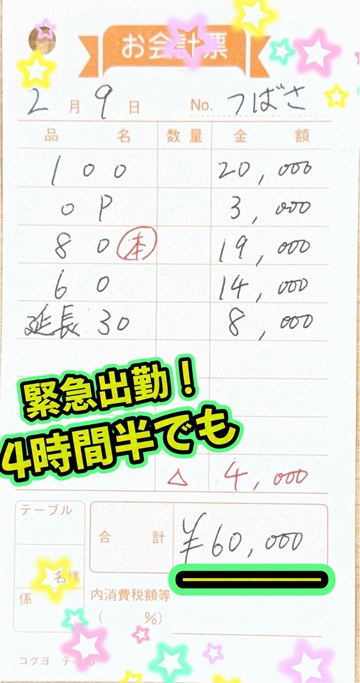 お会計票
2月9日 No. つばさ
品名 数量 金額
100 20,000
OP 3,000
80 本 19,000
60 14,000
延長30 8,000
緊急出勤！
4時間半でも
△ 4,000
テーブル
合計 ¥60,000
名様
係
内消費税額等
( %)
コクヨ テ